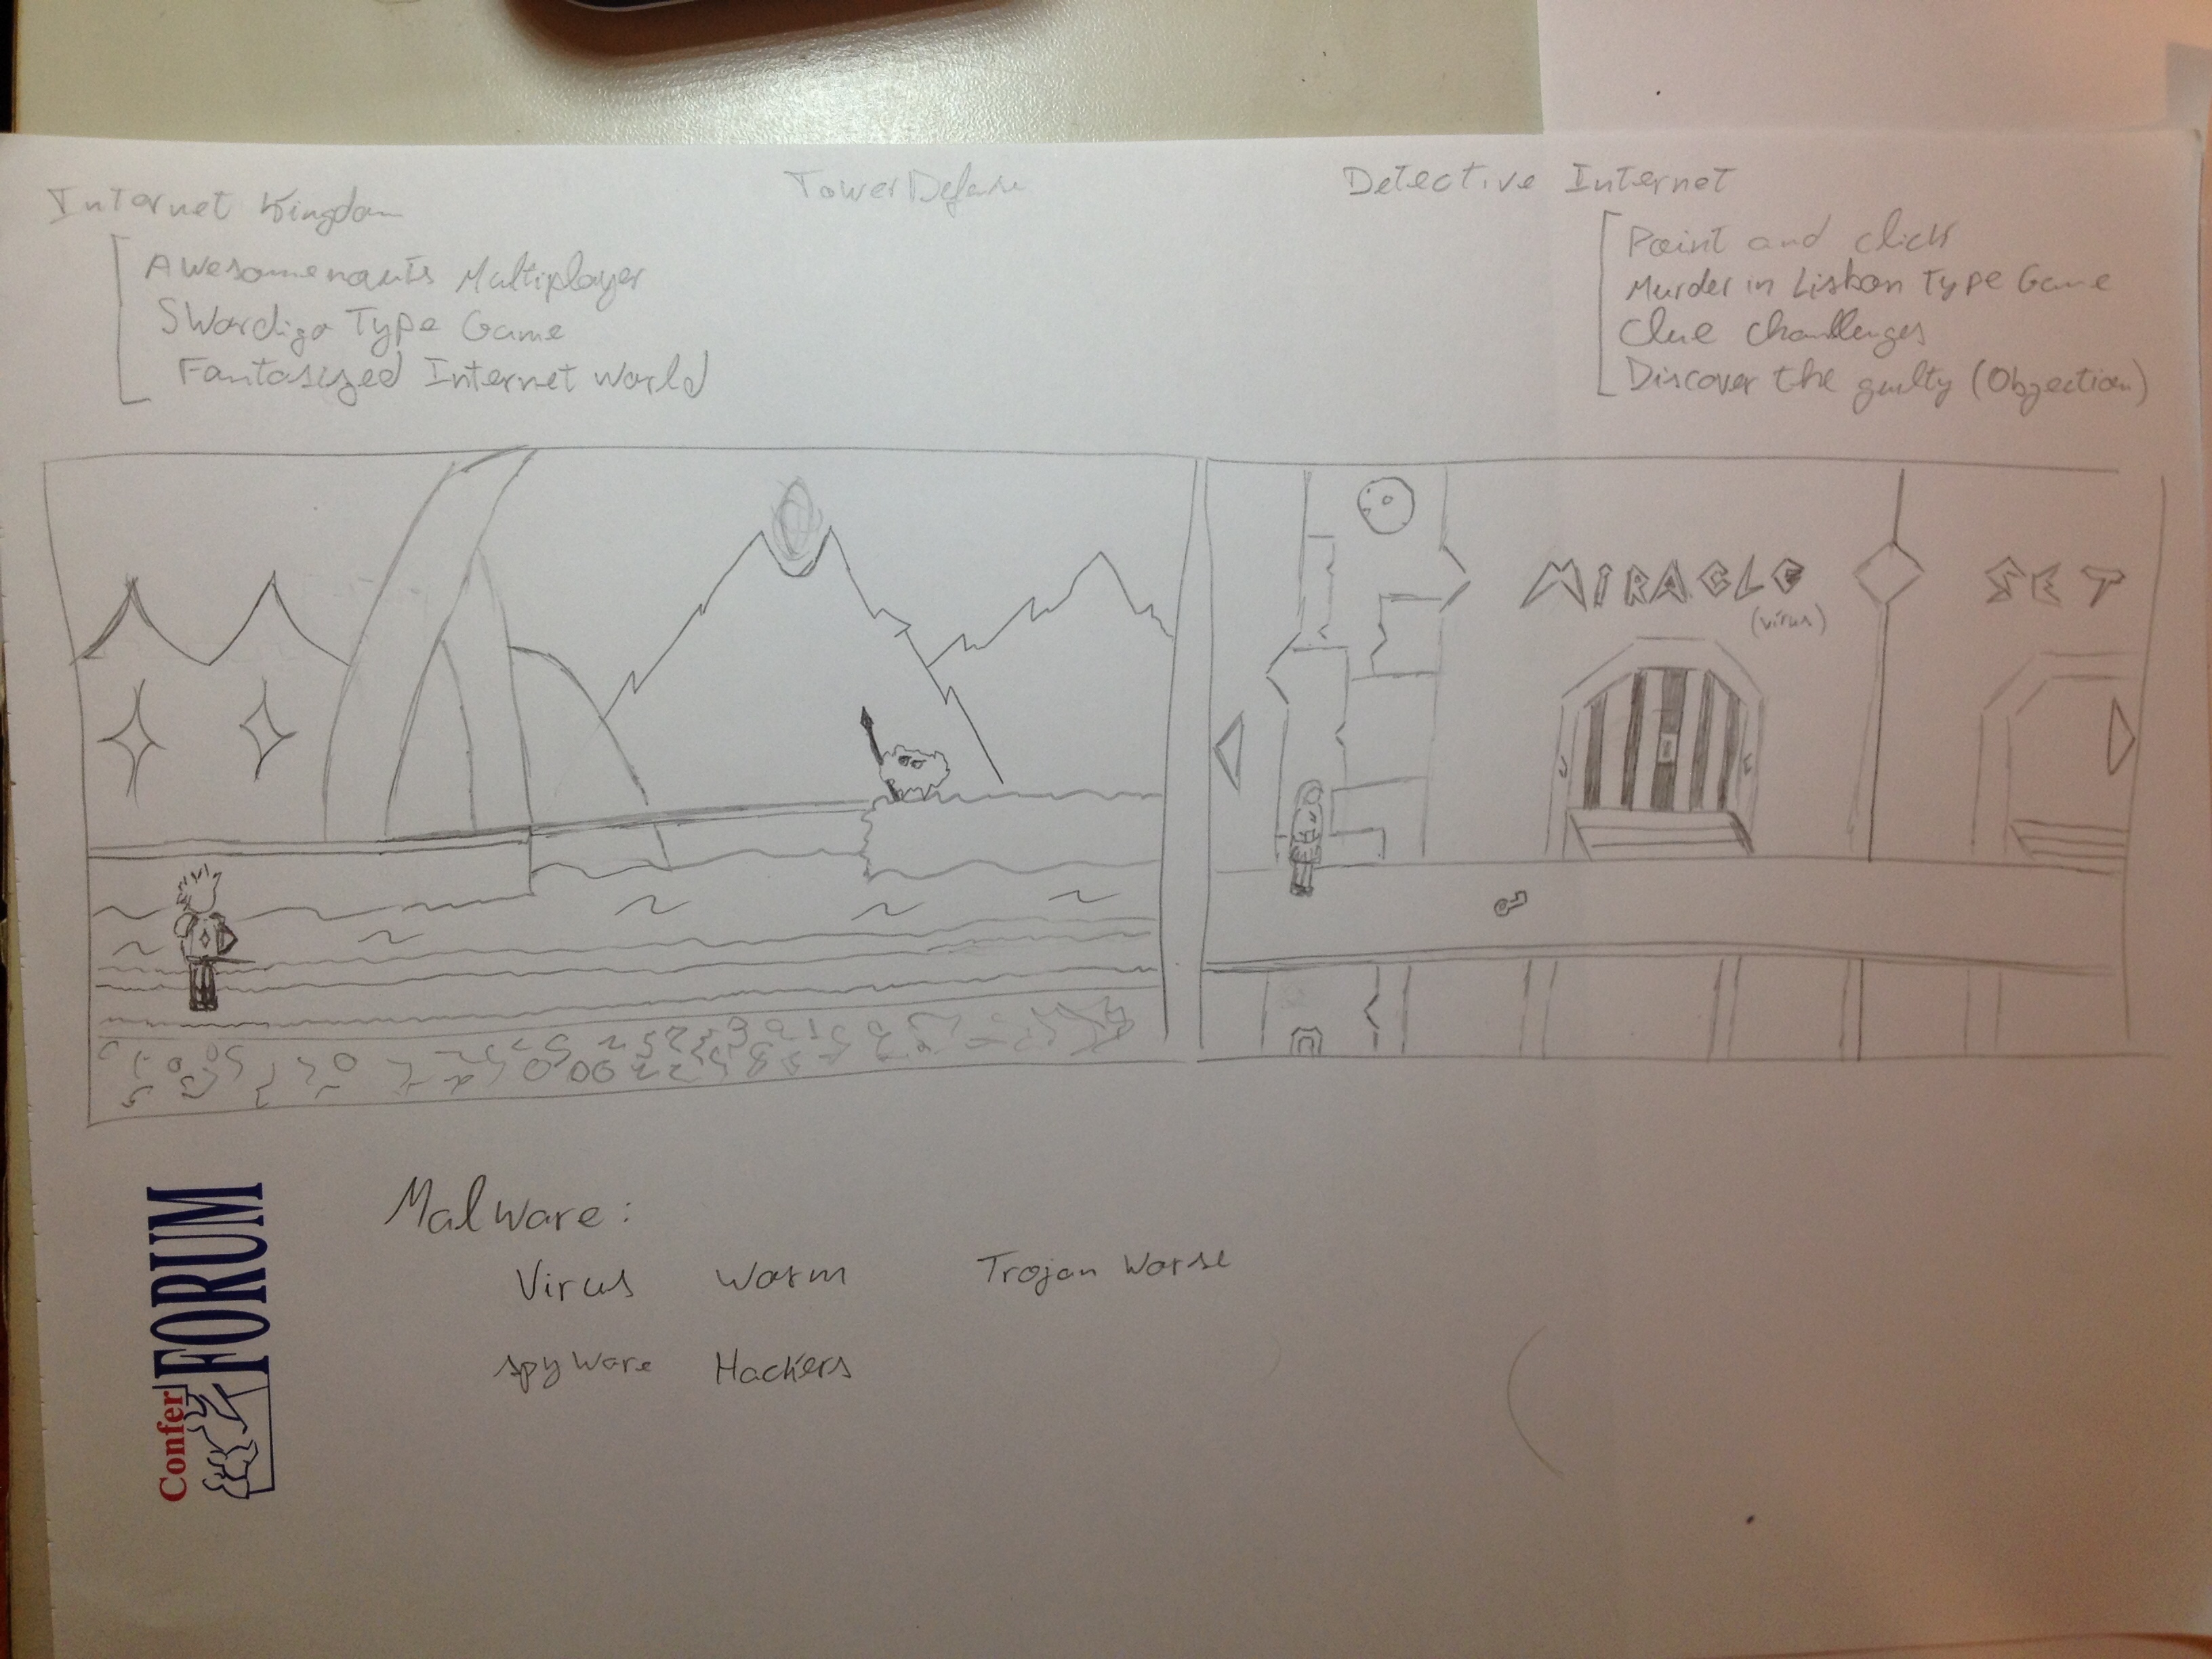 Internet Kingdom
Awesomenauts Multiplayer
Swordigo Type Game
Fantasized Internet World
Tower Defense
Detective Internet
Point and click
Murder in Lisbon Type Game
Clue challenges
Discover the guilty (Objection)
MIRACLE
(virus)
SET
Malware:
Virus Worm Trojan Worse
spyware Hackers
Confer
FORUM